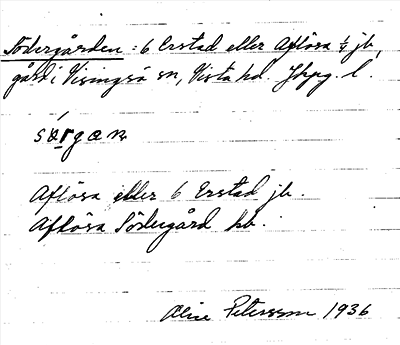 Södergården : 6 Erstad eller Aflösa 1/4 jb,
gård i Visingsö sn, Vista hd. Jkpg. l.
sœrgan
Aflösa eller 6 Erstad jb.
Aflösa Södergård kb.
Alice Petersson 1936